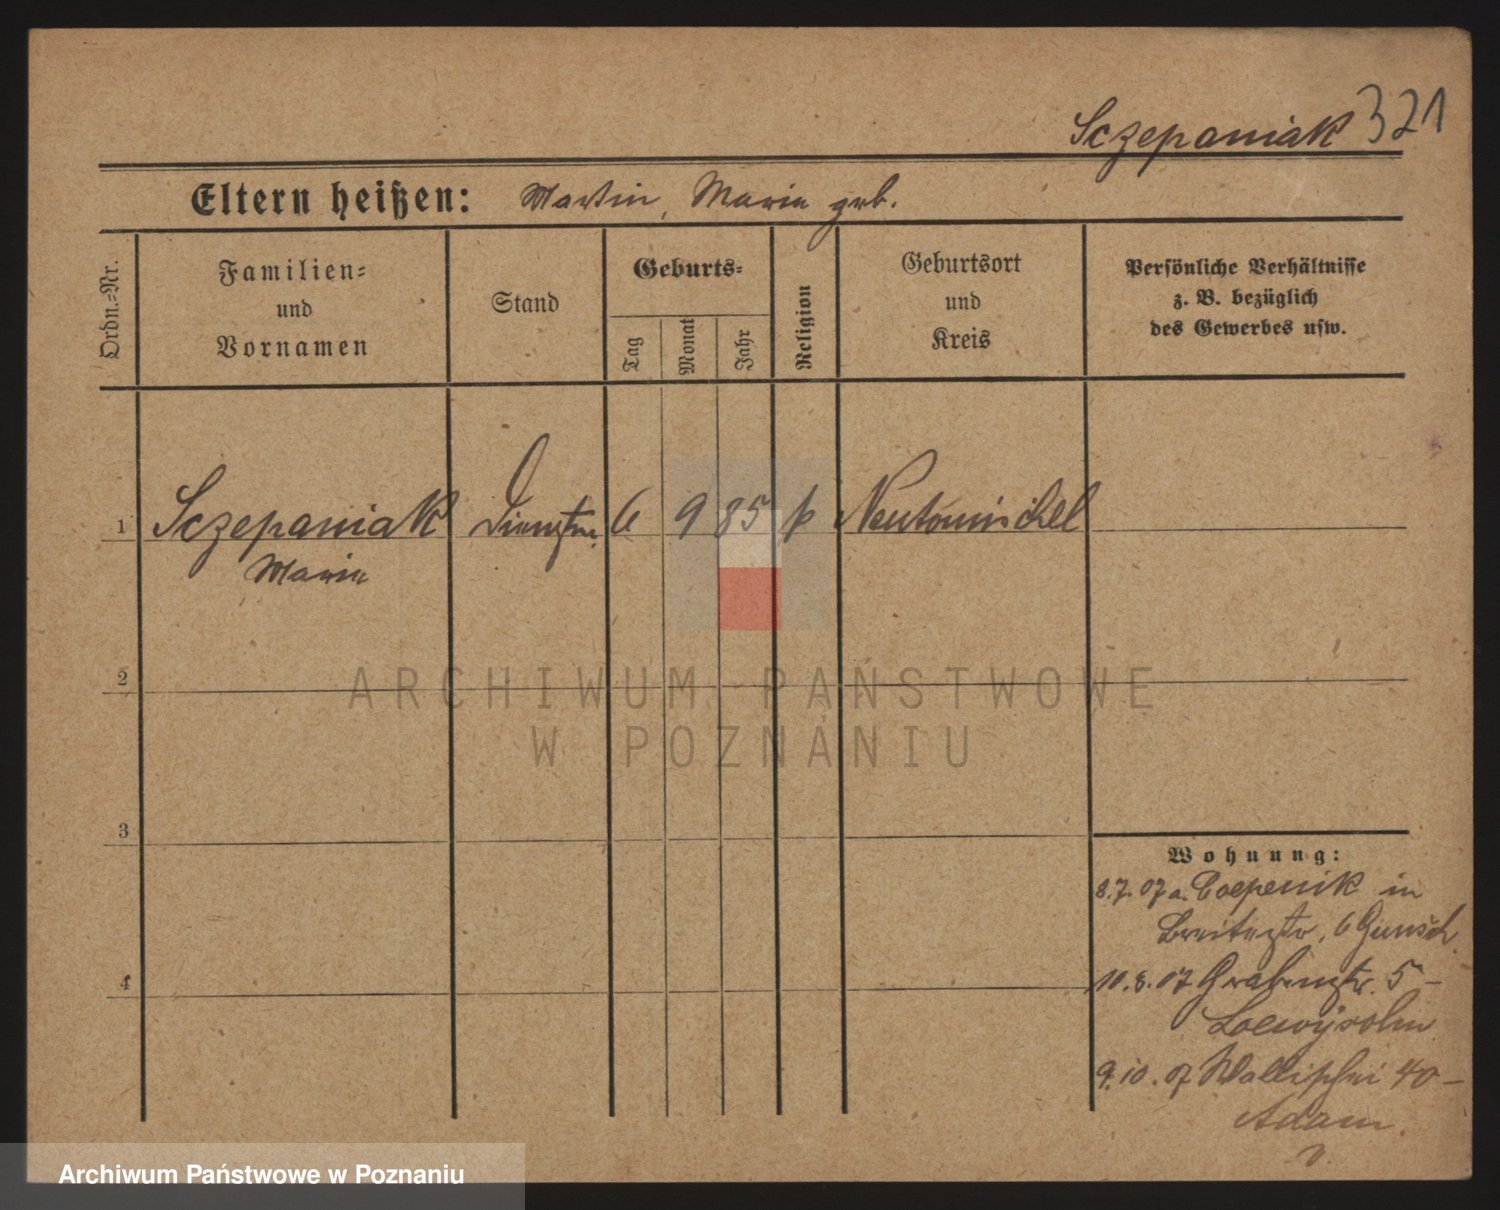 Sczepaniak 321
Eltern heißen: Martin, Maria geb.
Ordn.-Nr.
Familien-
und
Vornamen
Stand
Geburts-
Tag
Monat
Jahr
Religion
Geburtsort
und
Kreis
Persönliche Verhältnisse
z. B. bezüglich
des Gewerbes usw.
1 Sczepaniak 6 9 85 k
Maria
2
3
4
Wohnung:
8.7.07 a. Coepenik in
Breitestr. 6
10.8.07 Grabenstr. 5 -
Loewysohn
9.10.07 Wallischei 40 -
Adam
ARCHIWUM PAŃSTWOWE
W POZNANIU
Archiwum Państwowe w Poznaniu